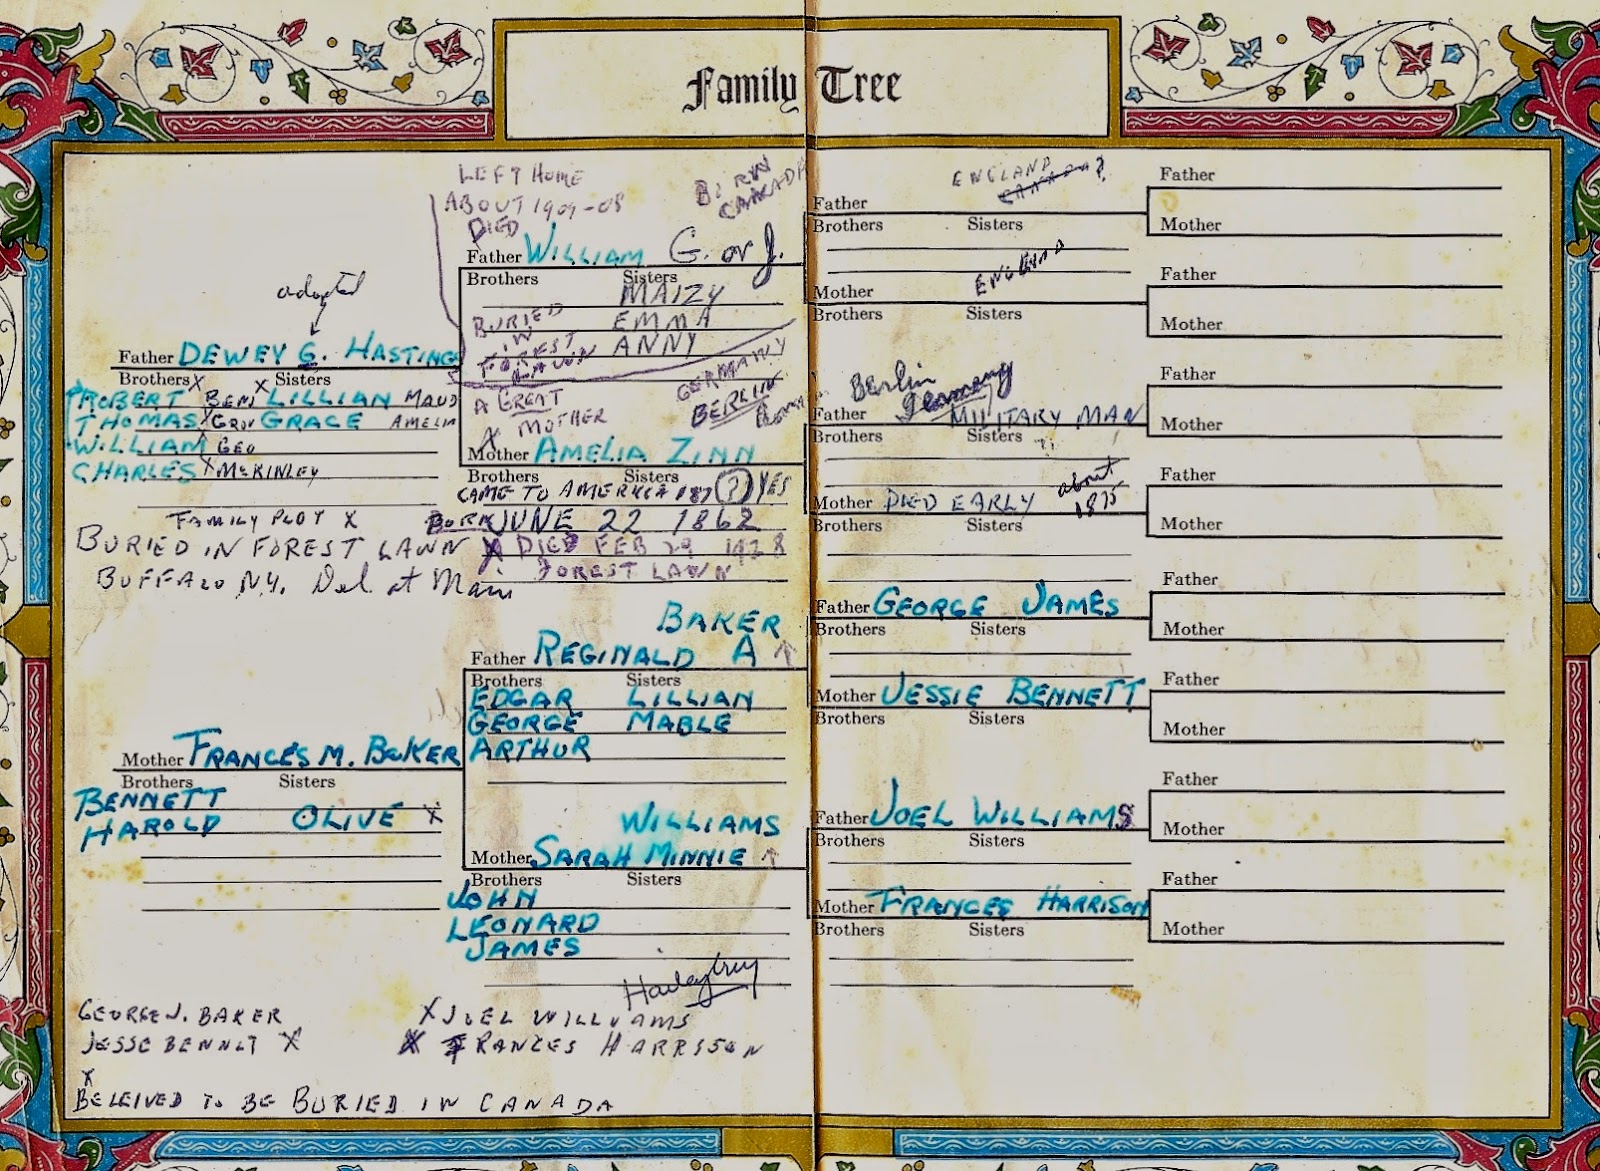 Family Tree
LEFT HOME
ABOUT 1907-08
DIED
BORN
CANADA
Father WILLIAM G. or J.
Brothers Sisters
MAIZY
EMMA
ANNY
BURIED
IN
FOREST
LAWN
adopted
Father DEWEY G. HASTINGS
Brothers X X Sisters
ROBERT BENJ LILLIAN MAUD
THOMAS X GROV GRACE AMELIA
WILLIAM GEO
CHARLES X McKINLEY
FAMILY PLOT X
BURIED IN FOREST LAWN
BUFFALO NY. Del at Main
A GREAT
MOTHER
GERMANY
BERLIN
Mother AMELIA ZINN
Brothers Sisters
CAME TO AMERICA 187(?) YES
BORN JUNE 22 1862
X DIED FEB 29 1928
FOREST LAWN
BAKER
Father REGINALD A ↑
Brothers Sisters
EDGAR LILLIAN
GEORGE MABLE
ARTHUR
Mother FRANCES M. BAKER
Brothers Sisters
BENNETT
HAROLD OLIVE X
WILLIAMS
Mother SARAH MINNIE ↑
Brothers Sisters
JOHN
LEONARD
JAMES
Haileybury
GEORGE J. BAKER
JESSE BENNET X
X JOEL WILLIAMS
X FRANCES HARRISON
X
BELEIVED TO BE BURIED IN CANADA
ENGLAND
CANADA?
Father
Brothers Sisters
ENGLAND
Mother
Brothers Sisters
Berlin
Germany
Father MILITARY MAN
Brothers Sisters
about
1875
Mother DIED EARLY
Brothers Sisters
Father GEORGE JAMES
Brothers Sisters
Mother JESSIE BENNETT
Brothers Sisters
Father JOEL WILLIAMS
Brothers Sisters
Mother FRANCES HARRISON
Brothers Sisters
Father
Mother
Father
Mother
Father
Mother
Father
Mother
Father
Mother
Father
Mother
Father
Mother
Father
Mother